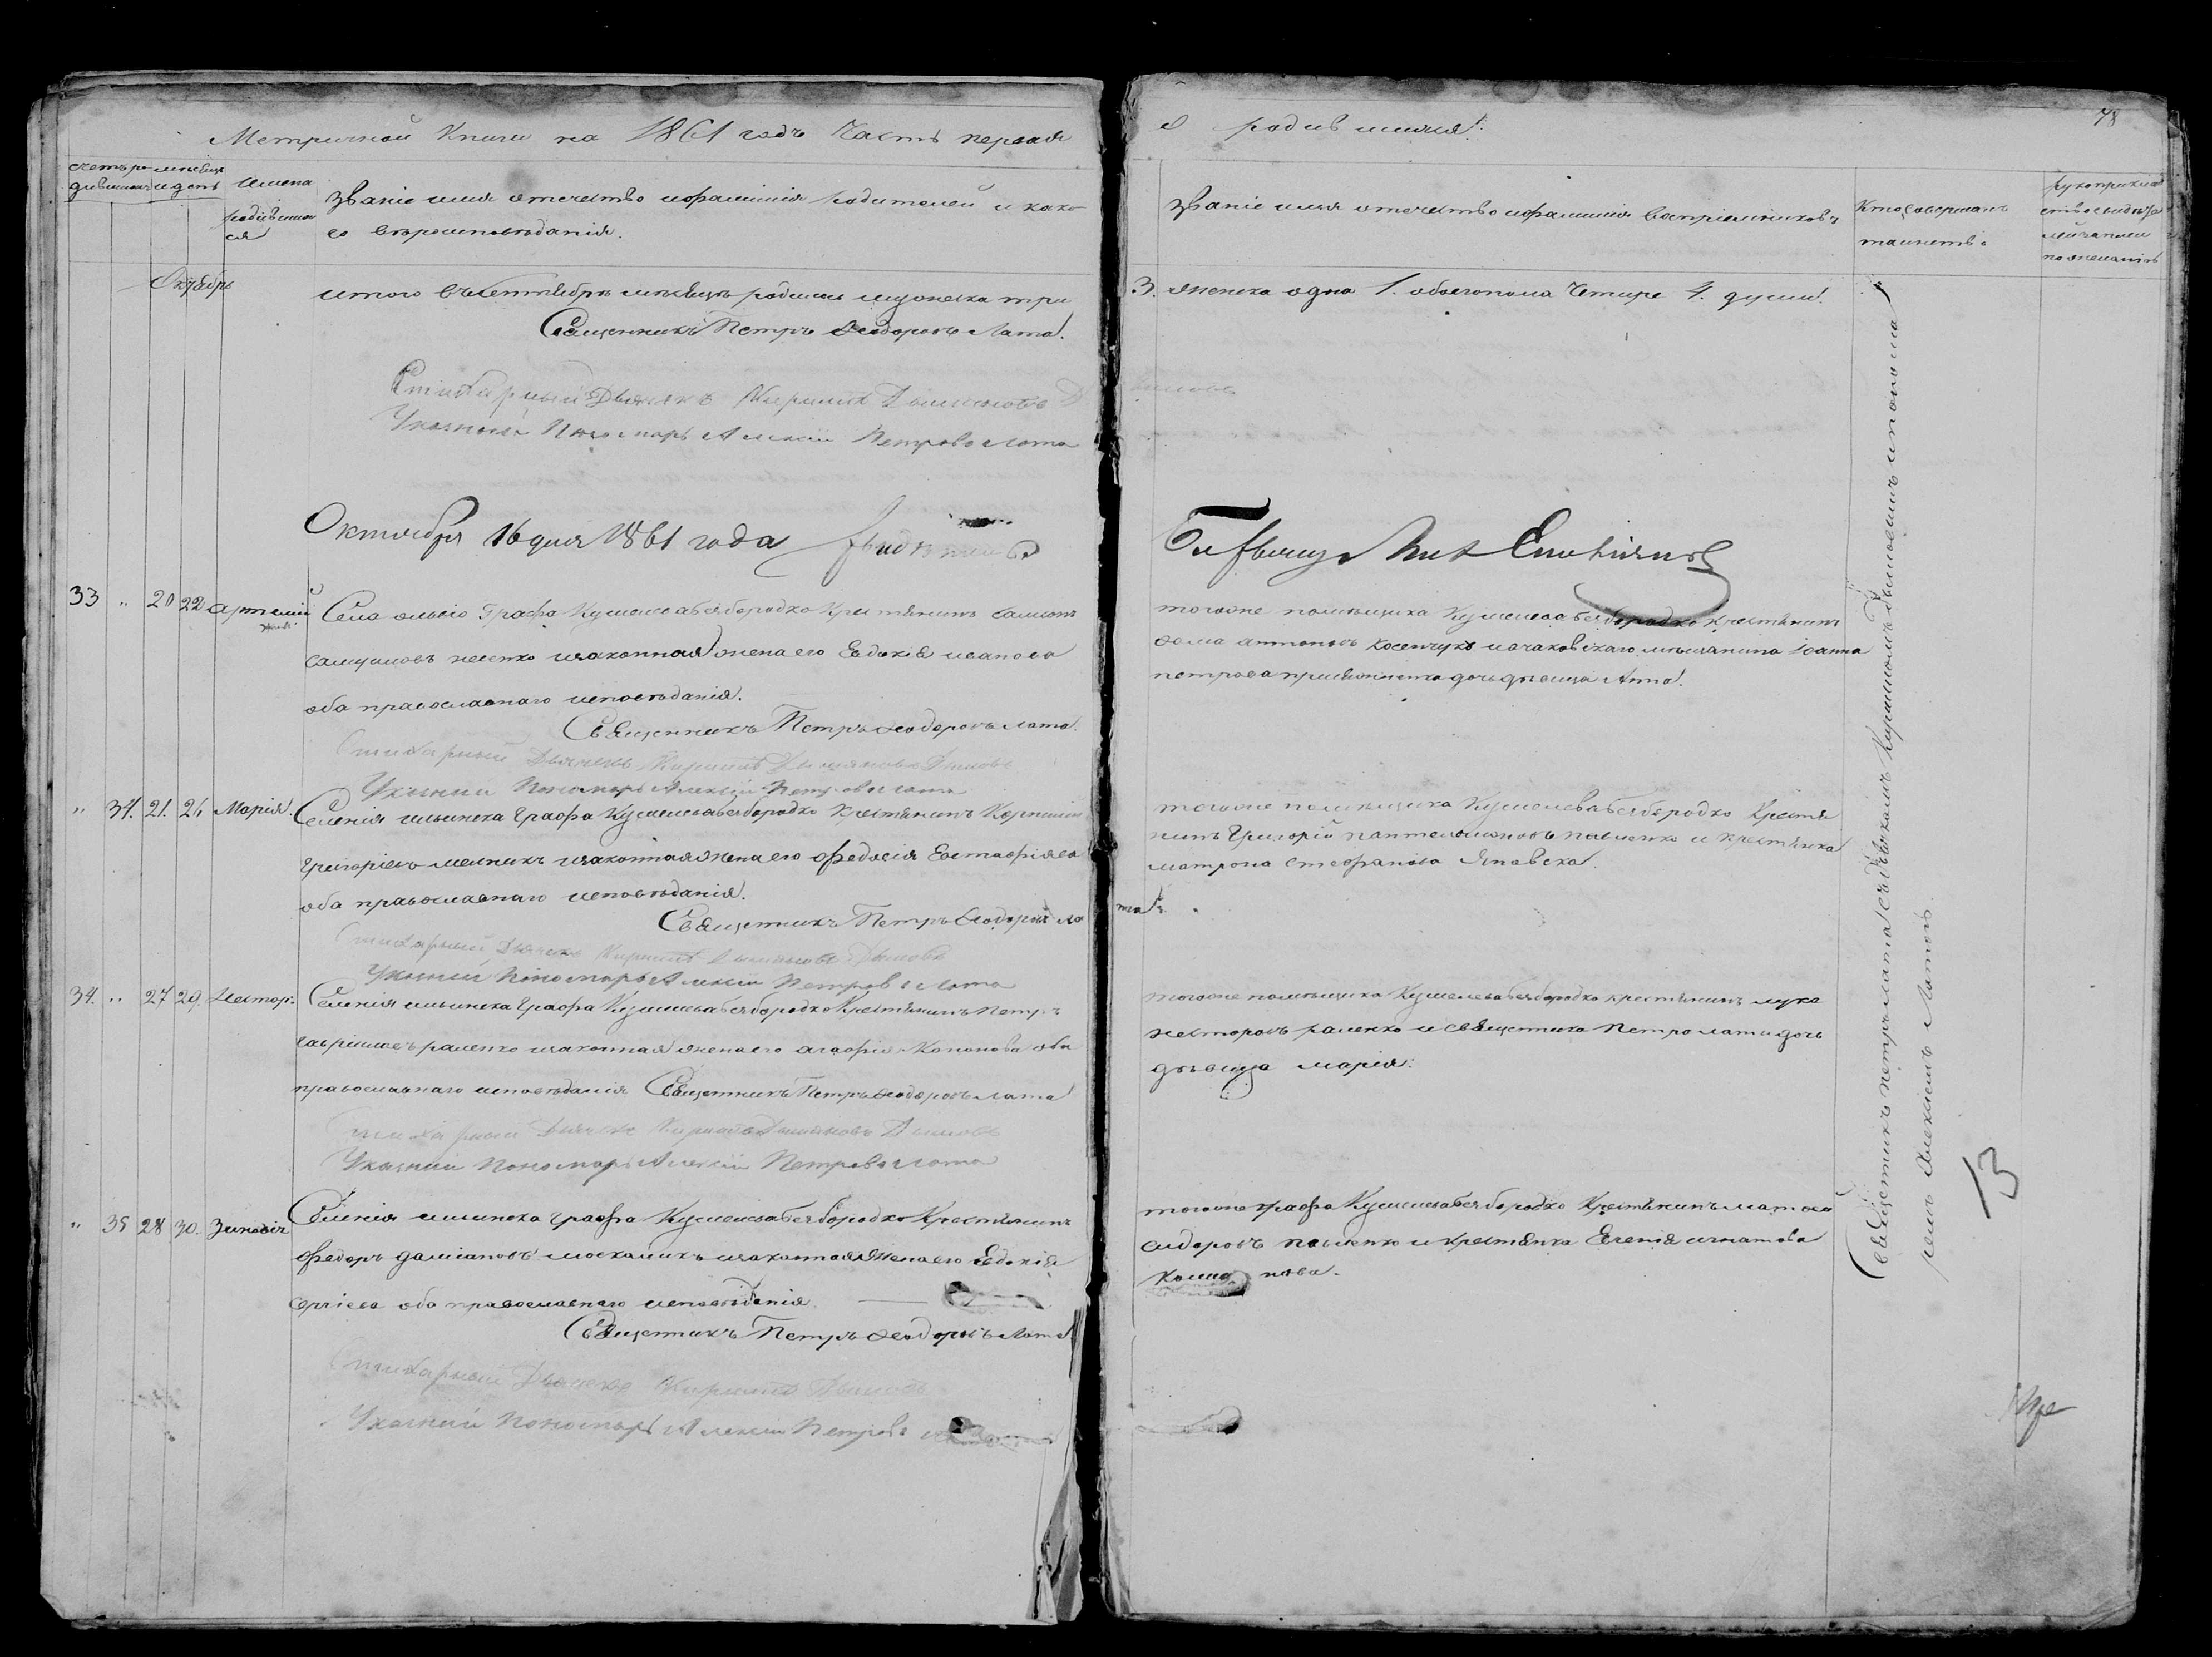 Метричной Книги на 1861 годъ Часть первая
о родившихся.
78
счетъ ро
дившихся
мѣсяцъ
и день
Имена
родивших
ся
Званіе имя отечество и фамилія Родителей и како
го вѣроисповѣданія.
Званіе имя отечество и фамилія Воспріемниковъ
Кто совершалъ
таинство
рукоприклад
ство свидѣте
лей записи
по желанію
Октябрь
итого въ Сентябрѣ мѣсяцѣ родилось мужеска три
3. женска одна 1. обоего пола Четыре 4. души.
Священникъ Петръ Ѳеодоровъ Лата.
Стихарный Дьячекъ Кириллъ Дымовъ
Указный Пономарь Алексій Петровъ Лата
Октября 16 дня 1861 года
33 " 20 22 Артемій
Села Ольыо Графа Кушелева безбородко Крестьянинъ
законная жена его Евдокія Иванова
оба православнаго исповѣданія.
Священникъ Петръ Ѳеодоровъ Лата.
Стихарный Дьячекъ Кириллъ Дымовъ
Указный Пономарь Алексій Петровъ Лата
тогоже помѣщика Кушелева безбородко Крестьянинъ
Ѳома антоновъ Косенчукъ и очаковскаго мѣщанина Іоанна
петрова дочь дѣвица Анна.
" 34. 21. 26 Марія.
Селенія ильинска Графа Кушелева безбородко Крестьянинъ Корнилій
Григоріевъ мелникъ и законная жена его Ѳедосія Евстафіева
оба православнаго исповѣданія.
Священникъ Петръ Ѳеодоровъ Лата.
Стихарный Дьячекъ Кириллъ Дымовъ
Указный Пономарь Алексій Петровъ Лата
тогоже помѣщика Кушелева безбородко Крестья
нинъ Григорій пантелимоновъ павленко и крестьянка
матрона стефанова Яновска.
34. " 27 29. Несторъ.
Селенія ильинска Графа Кушелева безбородко Крестьянинъ Петръ
гавриловъ раленко и законная жена его агафія Кононова оба
православнаго исповѣданія Священникъ Петръ Ѳеодоровъ Лата
Стихарный Дьячекъ Кириллъ Дымовъ
Указный Пономарь Алексій Петровъ Лата
тогоже помѣщика Кушелева безбородко крестьянинъ лука
несторовъ раленко и священника Петра латы дочь
дѣвица марія.
" 35 28 30. Зиновія
Селенія ильинска графа Кушелева безбородко Крестьянинъ
Ѳедоръ даміановъ москаликъ и законная жена его Евдокія
Сергіева оба православнаго исповѣданія.
Священникъ Петръ Ѳеодоровъ Лата
Стихарный Дьячекъ Кириллъ Дымовъ
Указный Пономарь Алексій Петровъ
тогоже графа Кушелева безбородко Крестьянинъ
сидоровъ павленко и крестьянка Евгенія игнатова
Священникъ петръ лата съ дьячкомъ Кирилломъ Дымовымъ и понома
ремъ Алексѣемъ Латою.
13